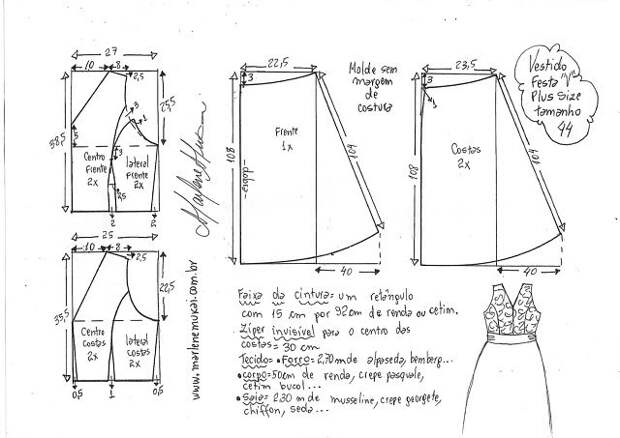 27
10
8
2,5
3
1
25,5
38,5
5
3
Centro
frente
2x
lateral
frente
2x
2,5
2
2
25
10
8
2,5
22,5
35,5
Centro
costas
2x
lateral
costas
2x
0,5
1
0,5
www.marlenemukai.com.br
22,5
3
Frente
1x
108
104
40
Molde sem
margem
de
costura
23,5
3
1
Costas
2x
108
104
40
Vestido
Festa "V"
Plus Size
tamanho
44
Faixa da cintura = um retângulo
com 15 cm por 92cm de renda ou cetim.
Zíper invisível para o centro das
costas = 30 cm
Tecido = • Forro = 2,70m de alpaseda, bemberg...
• corpo = 50cm de renda, crepe pasquale,
cetim bucol...
• Saia = 2.30 m de musseline, crepe georgete,
chiffon, seda...